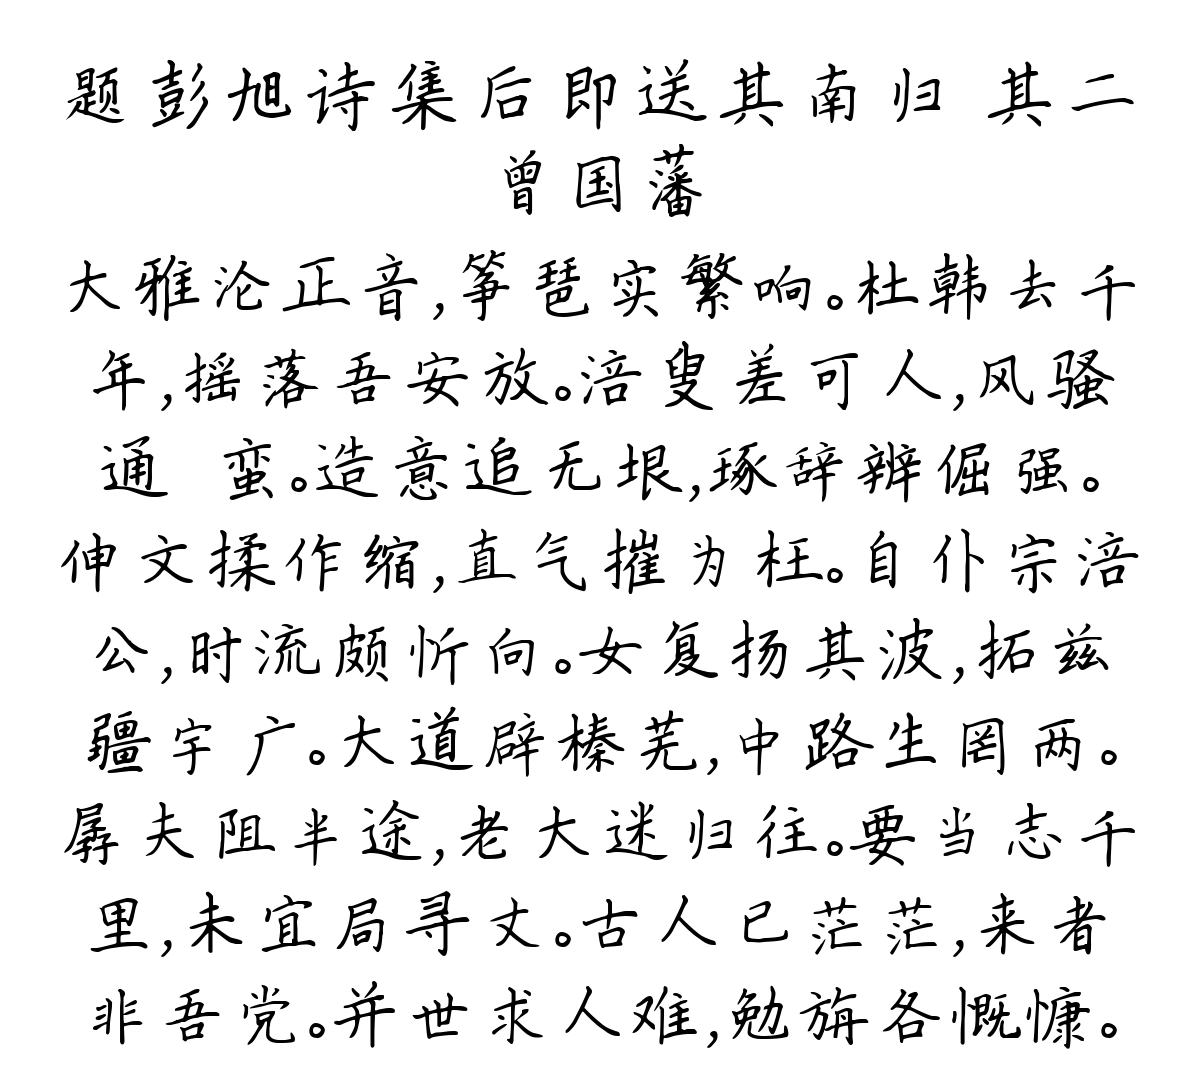 题彭旭诗集后即送其南归 其二
曾国藩
大雅沦正音,筝琶实繁响。杜韩去千
年,摇落吾安放。涪叟差可人,风骚
通 蛮。造意追无垠,琢辞辨倔强。
伸文揉作缩,直气摧为枉。自仆宗涪
公,时流颇忻向。女复扬其波,拓兹
疆宇广。大道辟榛芜,中路生罔两。
孱夫阻半途,老大迷归往。要当志千
里,未宜局寻丈。古人已茫茫,来者
非吾党。并世求人难,勉旃各慨慷。